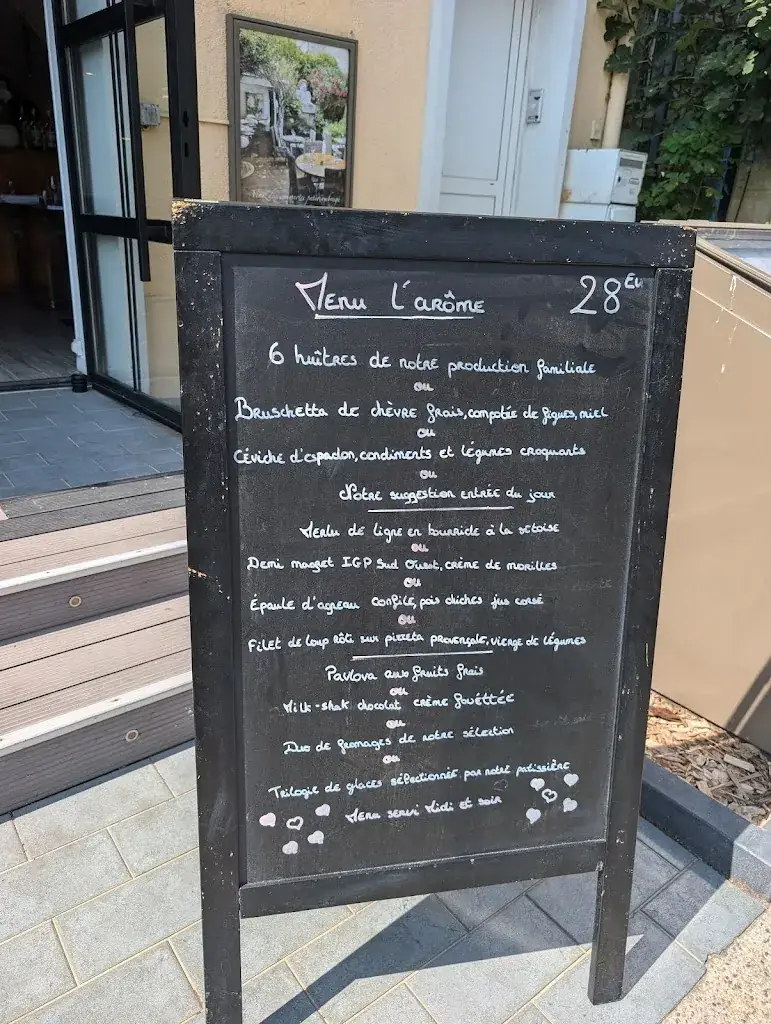 Menu L'arôme 28 Eu
6 huîtres de notre production familiale
ou
Bruschetta de chèvre frais, compotée de figues, miel
ou
Céviche d'espadon, condiments et légumes croquants
ou
Notre suggestion entrée du jour
Merlu de ligne en bourride à la setoise
ou
Demi magret IGP Sud Ouest, crème de morilles
ou
Épaule d'agneau confite, pois chiches jus corsé
ou
Filet de loup rôti sur pizzeta provençale, vierge de légumes
Pavlova aux fruits frais
ou
Milk-shak chocolat crème fouéttée
ou
Duo de fromages de notre sélection
ou
Trilogie de glaces sélectionnée par notre patissière
Menu servi Midi et soir